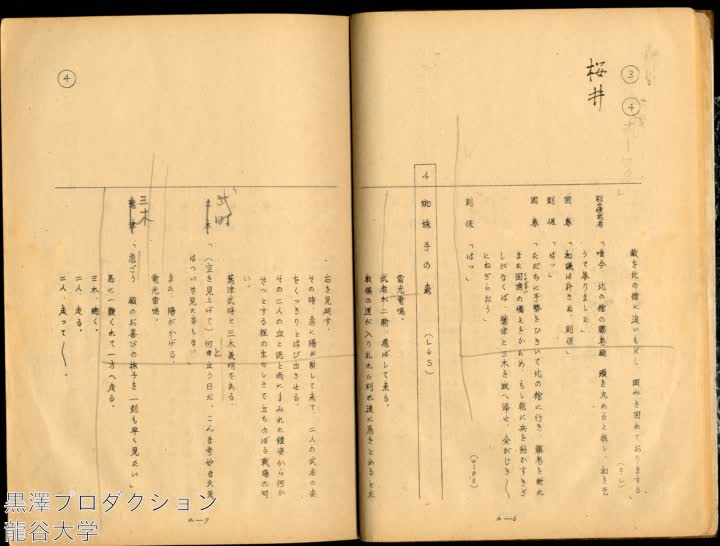 ③ ④
桜井
敵を北の館に追いもどし、囲みを固めております」
(O・L)
「唯今 北の館の藤巻殿 頭を丸めると称し、和を乞
うて参りました」
国春 「和議は許さぬ、則保」
則保 「はッ」
国春 「ただちに手勢をひきいて北の館に行き 藤巻を斬れ
また国境の備えをかため もし乾に兵を動かすきざ
しがなくば、鷲津と三木を城へ帰せ、余がじき〳〵
にねぎらおう」
則保 「はッ」
(WIPE)
4 蜘蛛手の森 (L・S)
雷光雷鳴。
武者が二騎、飛ばして来る。
数條の道が入り乱れた別れ道に馬をとめると左
a—6
④
右を見廻す。
その時、急に陽が射して来て、二人の武者の姿
をくっきりとはび出させる。
その二人の血と泥と雨にまみれた鎧姿から何か
ぞっとする程の生々しさで立ちのぼる戦場の匂
い。
鷲津武時と三木義明である。
武時
「(空を見上げて)何と云う日だ、こんな奇妙な天気
はついぞ見た事もな」
また、陽がかげる。
電光雷鳴。
三木
「急ごう 殿のお喜びの様子を一刻も早く見たい」
馬に一鞭くれて一方へ走る。
三木、続く。
二人、走る。
二人、走って〳〵。
a—7
黒澤プロダクション
龍谷大学